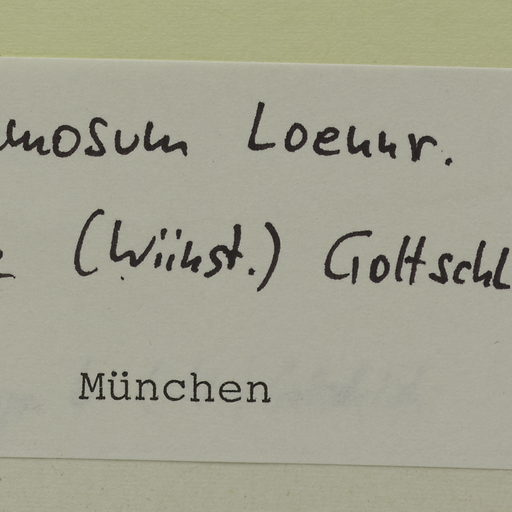 mosum Loennr.
(Wünst.) Gottschl
München